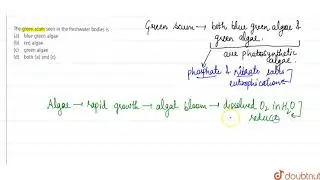 The green scum seen in the freshwater bodies is
(a) blue green algae
(b) red algae
(c) green algae
(d) both (a) and (c)
Green scum → both blue green algae &
green algae.
are photosynthetic
algae.
phosphate & nitrate salts
eutrophication
Algae → rapid growth → algal bloom → dissolved O2 in H2O
reduces
doubtnut